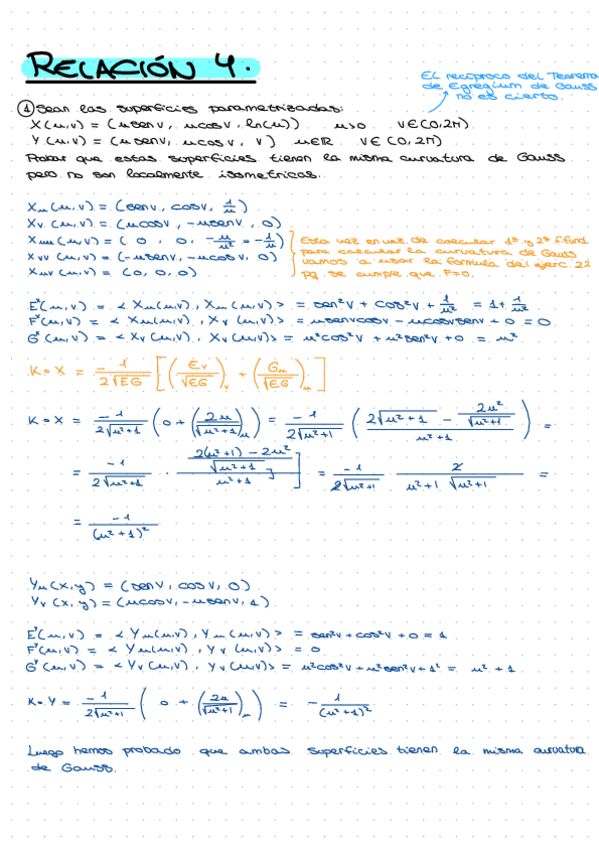 RELACIÓN 4.
El recíproco del Teorema
de Egregium de Gauss
no es cierto.
① Sean las superficies parametrizadas:
X(u,v) = (u senv, u cosv, ln(u)) u>0 v∈(0,2π)
Y(u,v) = (u senv, u cosv, v) u∈ℝ v∈(0,2π)
Probar que estas superficies tienen la misma curvatura de Gauss
pero no son localmente isométricas.
Xu(u,v) = (senv, cosv, 1/u)
Xv(u,v) = (u cosv, -u senv, 0)
Xuu(u,v) = (0, 0, -u/u² = -1/u)
Xvv(u,v) = (-u senv, -u cosv, 0)
Xuv(u,v) = (0, 0, 0)
Esta vez en vez de calcular 1ª y 2ª f.fund
para calcular la curvatura de Gauss
vamos a usar la fórmula del ejerc. 22
pq se cumple que F=0.
Eˣ(u,v) = <Xu(u,v), Xu(u,v)> = sen²v + cos²v + 1/u² = 1 + 1/u²
Fˣ(u,v) = <Xu(u,v), Xv(u,v)> = u senv cosv - u cosv senv + 0 = 0
Gˣ(u,v) = <Xv(u,v), Xv(u,v)> = u² cos²v + u² sen²v + 0 = u²
K∘X = -1/(2√EG) [(Ev/√EG)v + (Gu/√EG)u]
K∘X = -1/(2√u²+1) (0 + (2u/√u²+1)u) = -1/(2√u²+1) ((2√u²+1 - 2u²/√u²+1)/(u²+1)) =
= -1/(2√u²+1) · ((2(u²+1) - 2u²)/√u²+1)/(u²+1)] = -1/(2√u²+1) · 2/(u²+1 √u²+1) =
= -1/(u²+1)²
Yu(x,y) = (senv, cosv, 0)
Yv(x,y) = (u cosv, -u senv, 1)
Eʸ(u,v) = <Yu(u,v), Yu(u,v)> = sen²v + cos²v + 0 = 1
Fʸ(u,v) = <Yu(u,v), Yv(u,v)> = 0
Gʸ(u,v) = <Yv(u,v), Yv(u,v)> = u² cos²v + u² sen²v + 1² = u² + 1
K∘Y = -1/(2√u²+1) (0 + (2u/√u²+1)u) = -1/(u²+1)²
Luego hemos probado que ambas superficies tienen la misma curvatura
de Gauss.